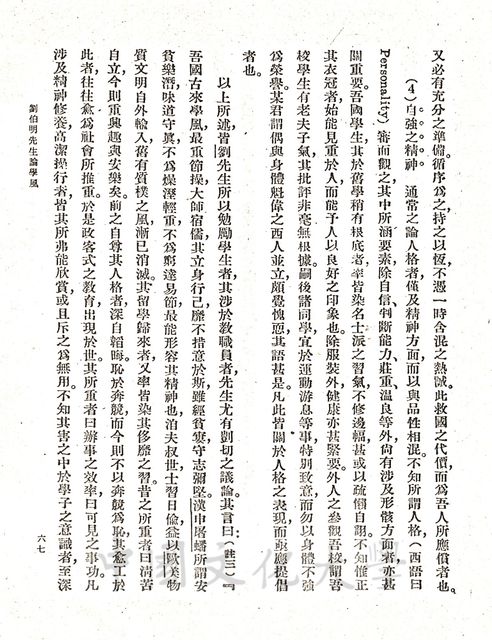 又必有充分之準備循序爲之持之以恆不憑一時含混之熱誠此救國之代價而爲吾人所應償者也。
（4）自強之精神　通常之論人格者僅及精神方面而以與品性相混不知所謂人格（西語曰
Personality），審而觀之其中所涵要素除自信判斷能力莊重溫良等外尙有涉及形骸方面者亦甚
關重要吾國學生其於舊學稍有根底者率皆染名士派之習氣不修邊幅甚或以疏懶自詡不知惟正
其衣冠者始能見重於人而能予人以良好之印象也除服裝外健康亦甚緊要外人之參觀吾校謂吾
校學生有老夫子氣其批評非毫無根據嗣後諸同學宜於運動游息等事特別致意而勿以身體不強
爲榮譽某君謂偶與身體魁偉之西人並立頗覺愧恧其語甚是凡此皆關於人格之表現而亟應提倡
者也。
以上所述皆劉先生所以勉勵學生者其涉於教職員者先生尤有剴切之議論其言曰：（註三）『
吾國古來學風最重節操大師宿儒其立身行己靡不措意於斯雖經貧寠守志彌堅漢申屠蟠所謂安
貧樂潛味道守眞不爲燥溼輕重不爲窮達易節最能形容其精神也洎夫叔世士習日偷益以歐美物
質文明自外輸入舊有質樸之風漸已消滅其留學歸來者又率皆染其侈靡之習昔之所重者曰清苦
自立今則重興趣與安樂矣前之自尊其人格者深自韜晦恥於奔競而今則不以奔競爲恥其愈工於
此者往往愈爲社會所推重於是政客式之教育出現於世其所重者曰辦事之效率曰可見之事功凡
涉及精神修養高潔操行者皆其所弗能欣賞或且斥之爲無用不知其害之中於學子之意識者至深
劉伯明先生論學風
六七
中國文化大學